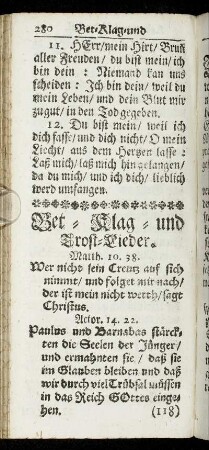 280 Bet-Klag-und
11. HErr/mein Hirt/ Brun
aller Freuden/ du bist mein/ ich
bin dein : Niemand kan uns
scheiden : Ich bin dein/ weil du
mein Leben/ und dein Blut mir
zugut/ in den Tod gegeben.
12. Du bist mein/ weil ich
dich fasse/und dich nicht/ O mein
Liecht/ aus dem Hertzen lasse :
Laß mich/ laß mich hin gelangen/
da du mich/ und ich dich/ lieblich
werd umfangen.
Bet - Klag - und
Trost-Lieder.
Matth. 10. 38.
Wer nicht sein Creutz auf sich
nimmt/ und folget mir nach/
der ist mein nicht werth/ sagt
Christus.
Actor. 14. 22.
Paulus und Barnabas stärck-
ten die Seelen der Jünger/
und ermahnten sie / daß sie
im Glauben bleiben und daß
wir durch viel Trübsal müssen
in das Reich GOttes einge-
hen. (118)